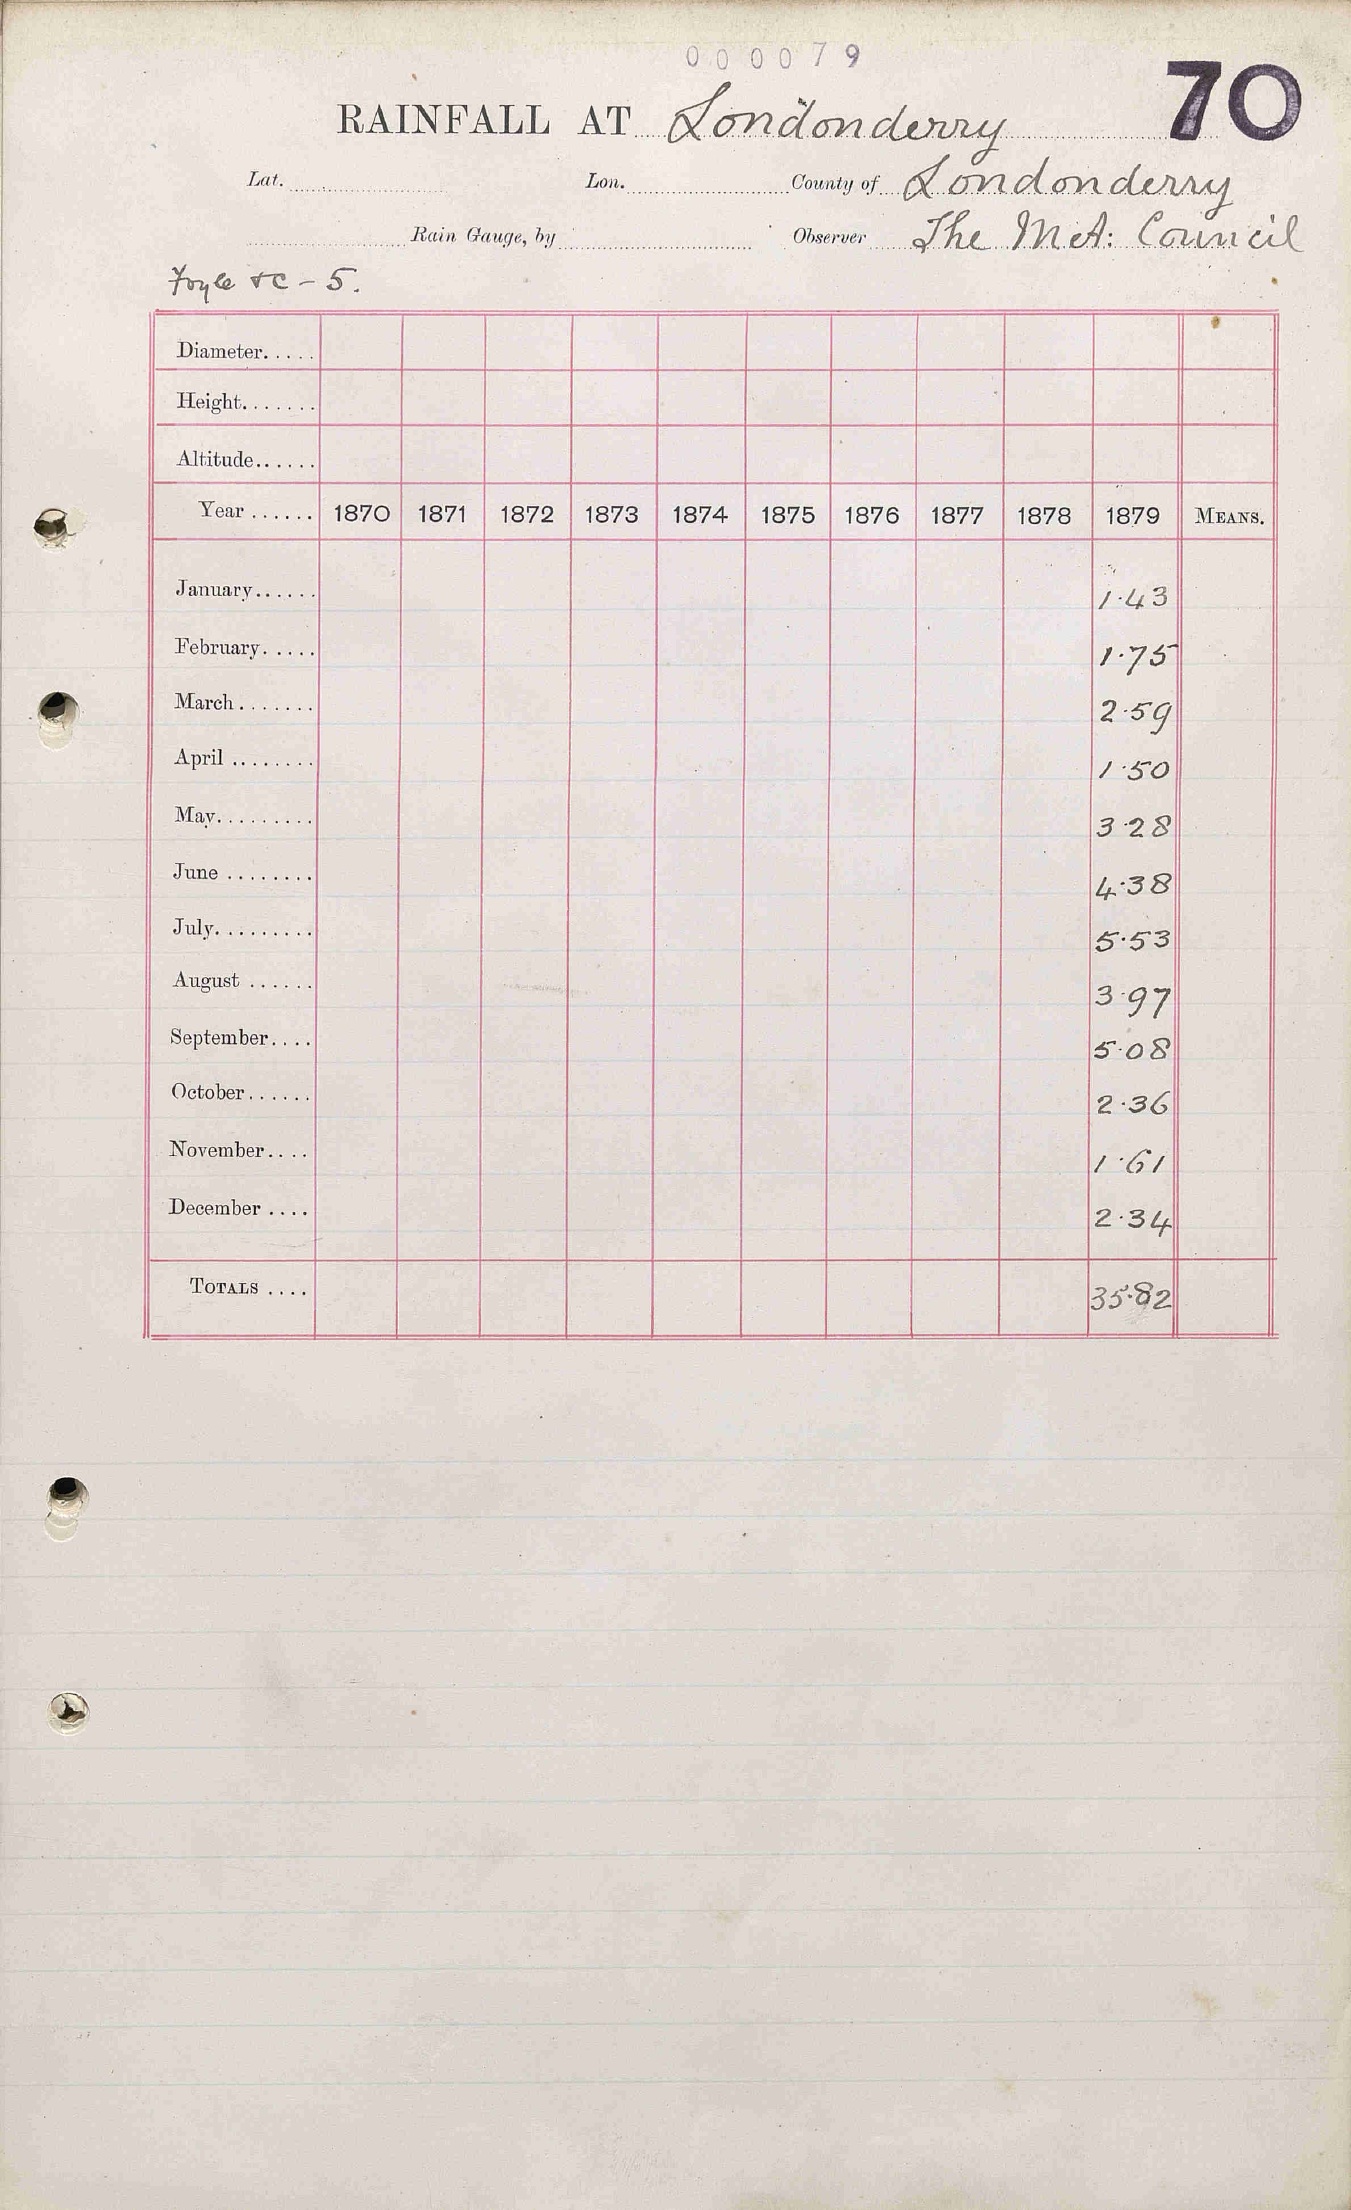 000079
70
RAINFALL AT Londonderry
Lat. Lon. County of Londonderry
Rain Gauge, by Observer The Met: Council
Foyle &c - 5.
Diameter.....
Height.......
Altitude......
Year ...... 1870 1871 1872 1873 1874 1875 1876 1877 1878 1879 MEANS.
January...... 1.43
February..... 1.75
March ....... 2.59
April ........ 1.50
May......... 3.28
June ........ 4.38
July......... 5.53
August ...... 3.97
September.... 5.08
October...... 2.36
November.... 1.61
December .... 2.34
TOTALS .... 35.82